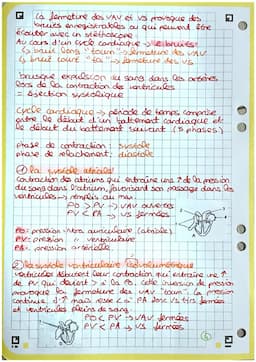 La fermeture des VAV et VS provoque des
bruits enregistrables ou qui peuvent être
écoutés avec un stéthoscope.
Au cours d'un cycle cardiaque → 2 bruits :
① bruit long "toum" → fermeture des VAV
② bruit court "ta" → fermeture des VS
brusque expulsion du sang dans les artères
lors de la contraction des ventricules
= éjection systolique
Cycle cardiaque → période de temps comprise
entre le début d'un battement cardiaque et
le début du battement suivant (5 phases)
phase de contraction : systole
phase de relâchement : diastole
① la systole atriale :
contraction des atriums qui entraîne une ↑ de la pression
du sang dans l'atrium, favorisant son passage dans les
ventricules → remplis au max.
PO > PV → VAV ouvertes
PV < PA → VS fermées
PO = pression auriculaire (atriale)
PV = pression ventriculaire
PA = pression artérielle
② la systole ventriculaire isovolumétrique
ventricules débutent leur contraction qui entraîne une ↑
de PV qui devient > à la PO. cette inversion de pression
provoque la fermeture des VAV "toum". pression
continue d'↑ mais reste < à PA donc VS tjrs fermées
et ventricules pleins de sang.
PO < PV → VAV fermées
PV < PA → VS fermées